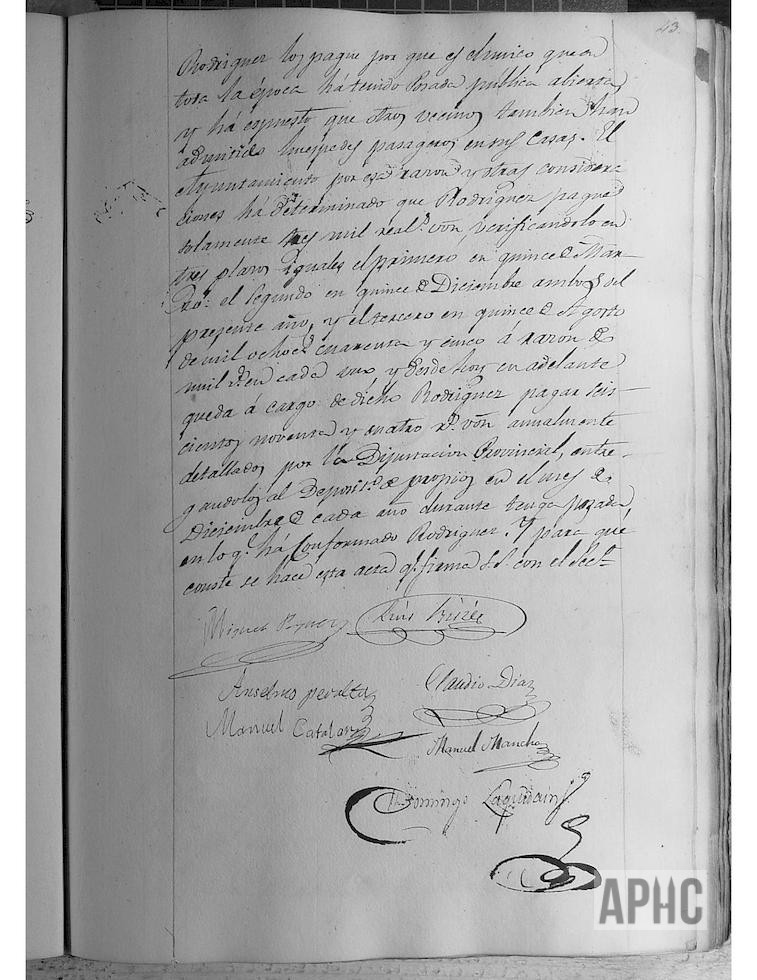 43.
Rodriguez los pague por que es el unico que en
toda la época há tenido Posada publica abierta,
y há espuesto que otros vecinos tambien han
admitido huespedes pasageros en sus Casas. El
Ayuntamiento por esa razon y otras considera
ciones há determinado que Rodriguez pague
solamente tres mil real.s von, verificandolo en
tres plazos iguales el primero en quince de Mar-
zo: el segundo en quince de Diciembre ambos del
presente año, y el tercero en quince de Agosto
de mil ochoc.s cuarenta y cinco á razon de
mil r.s en cada uno y desde hoy en adelante
queda á cargo de dicho Rodriguez pagar seis-
cientos noventa y cuatro r.s von anualmente
detallados por la Diputacion Provincial, entre-
gandolos al Deposit.o de propios en el mes de
Diciembre de cada año durante tenga posada,
en lo q.e há Conformado Rodriguez. Y para que
conste se hace esta acta q.e firma S.S. con el Sec.o
Miguel Luis
Anselmo peralta Claudio Diaz
Manuel Catalan Manuel Mancho
Domingo
APHC